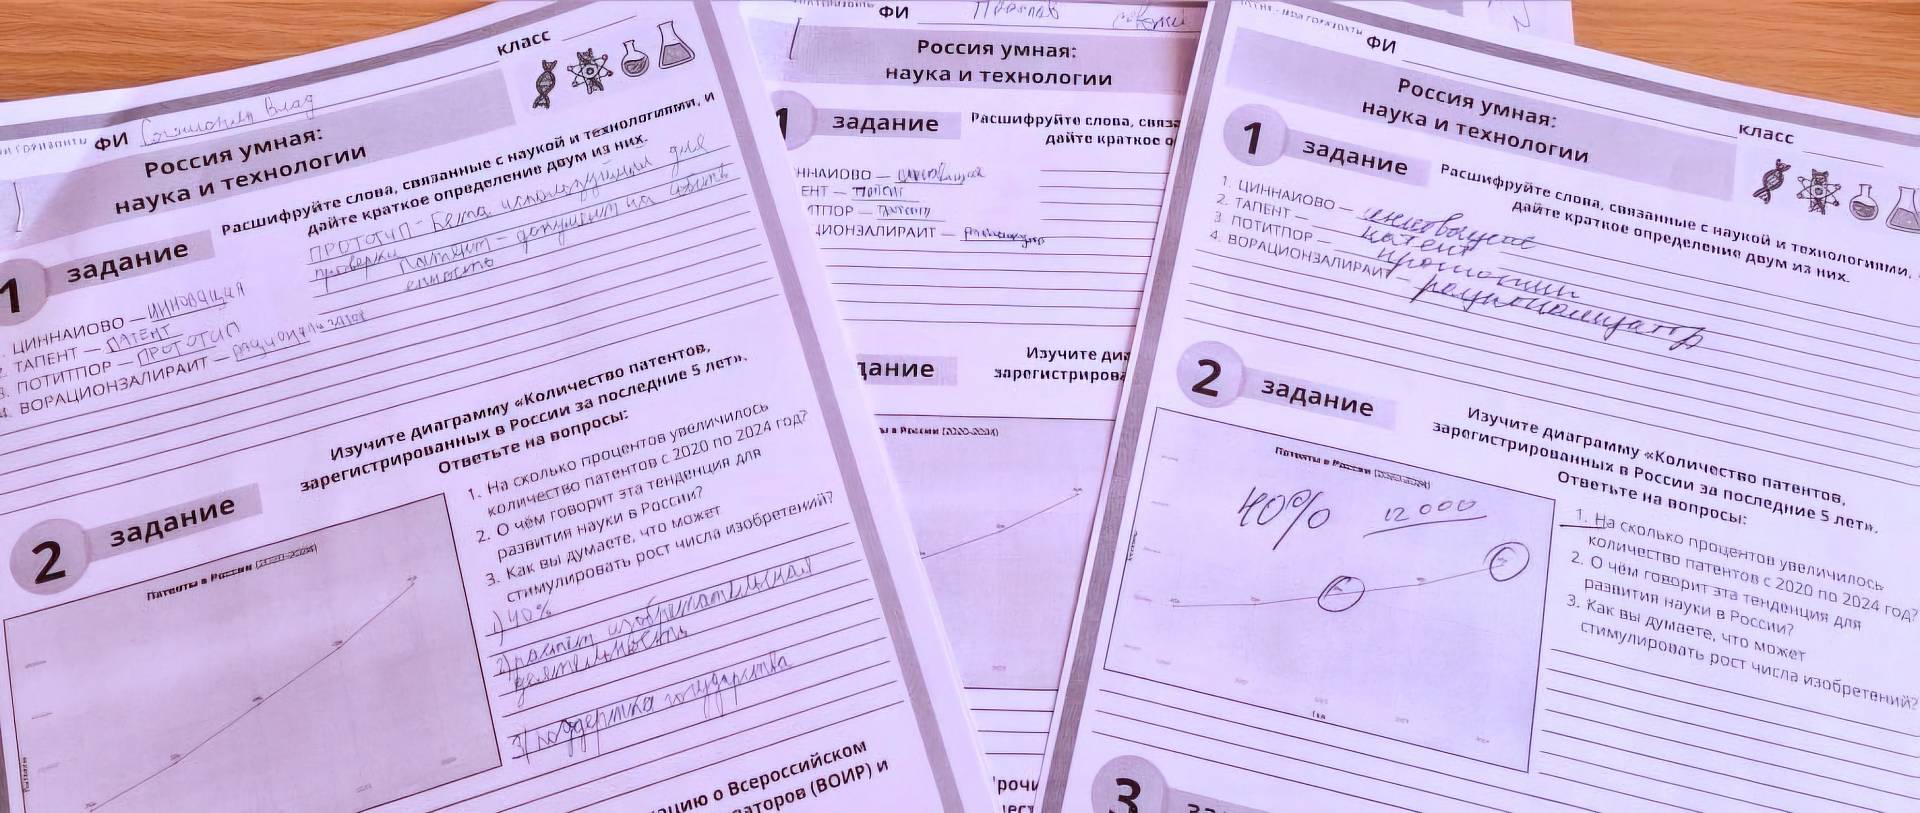 ФИ Влад
класс
Россия умная:
наука и технологии
1 задание
Расшифруйте слова, связанные с наукой и технологиями, и
дайте краткое определение двум из них.
ПРОТОТИП - используемый для
проверки Патент - документ на
ЦИННАИОВО — ИННОВАЦИЯ
ТАПЕНТ — ПАТЕНТ
3. ПОТИТПОР — ПРОТОТИП
4. ВОРАЦИОНЗАЛИРАИТ — рационализатор
2 задание
Изучите диаграмму «Количество патентов,
зарегистрированных в России за последние 5 лет».
Ответьте на вопросы:
Патенты в России (2020-2024)
1. На сколько процентов увеличилось
количество патентов с 2020 по 2024 год?
2. О чём говорит эта тенденция для
развития науки в России?
3. Как вы думаете, что может
стимулировать рост числа изобретений?
1) 40%
2) растёт изобретательная
деятельность
3) поддержка государства
цию о Всероссийском
аторов (ВОИР) и
ФИ
Россия умная:
наука и технологии
1 задание
Расшифруйте слова, связа
дайте краткое о
ННАИОВО — инновация
ЕНТ —
ИТПОР —
ЦИОНЗАЛИРАИТ —
дание
Изучите диа
зарегистрирова
ы в России (2020-2024)
ФИ
класс
Россия умная:
наука и технологии
1 задание
Расшифруйте слова, связанные с наукой и технологиями,
дайте краткое определение двум из них.
1. ЦИННАИОВО — инновация
2. ТАПЕНТ — патент
3. ПОТИТПОР — прототип
4. ВОРАЦИОНЗАЛИРАИТ — рационализатор
2 задание
Изучите диаграмму «Количество патентов,
зарегистрированных в России за последние 5 лет».
Ответьте на вопросы:
Патенты в России (2020-2024)
40% 12 000
Год
1. На сколько процентов увеличилось
количество патентов с 2020 по 2024 год?
2. О чём говорит эта тенденция для
развития науки в России?
3. Как вы думаете, что может
стимулировать рост числа изобретений?
3